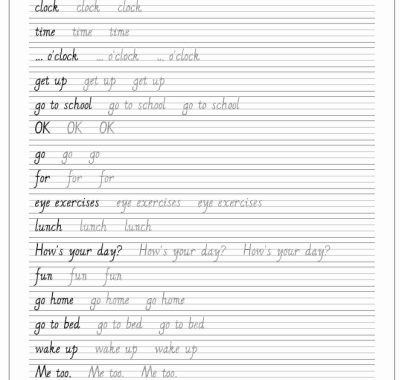 clock clock clock
time time time
... o'clock ... o'clock ... o'clock
get up get up get up
go to school go to school go to school
OK OK OK
go go go
for for for
eye exercises eye exercises eye exercises
lunch lunch lunch
How's your day? How's your day? How's your day?
fun fun fun
go home go home go home
go to bed go to bed go to bed
wake up wake up wake up
Me too. Me too. Me too.